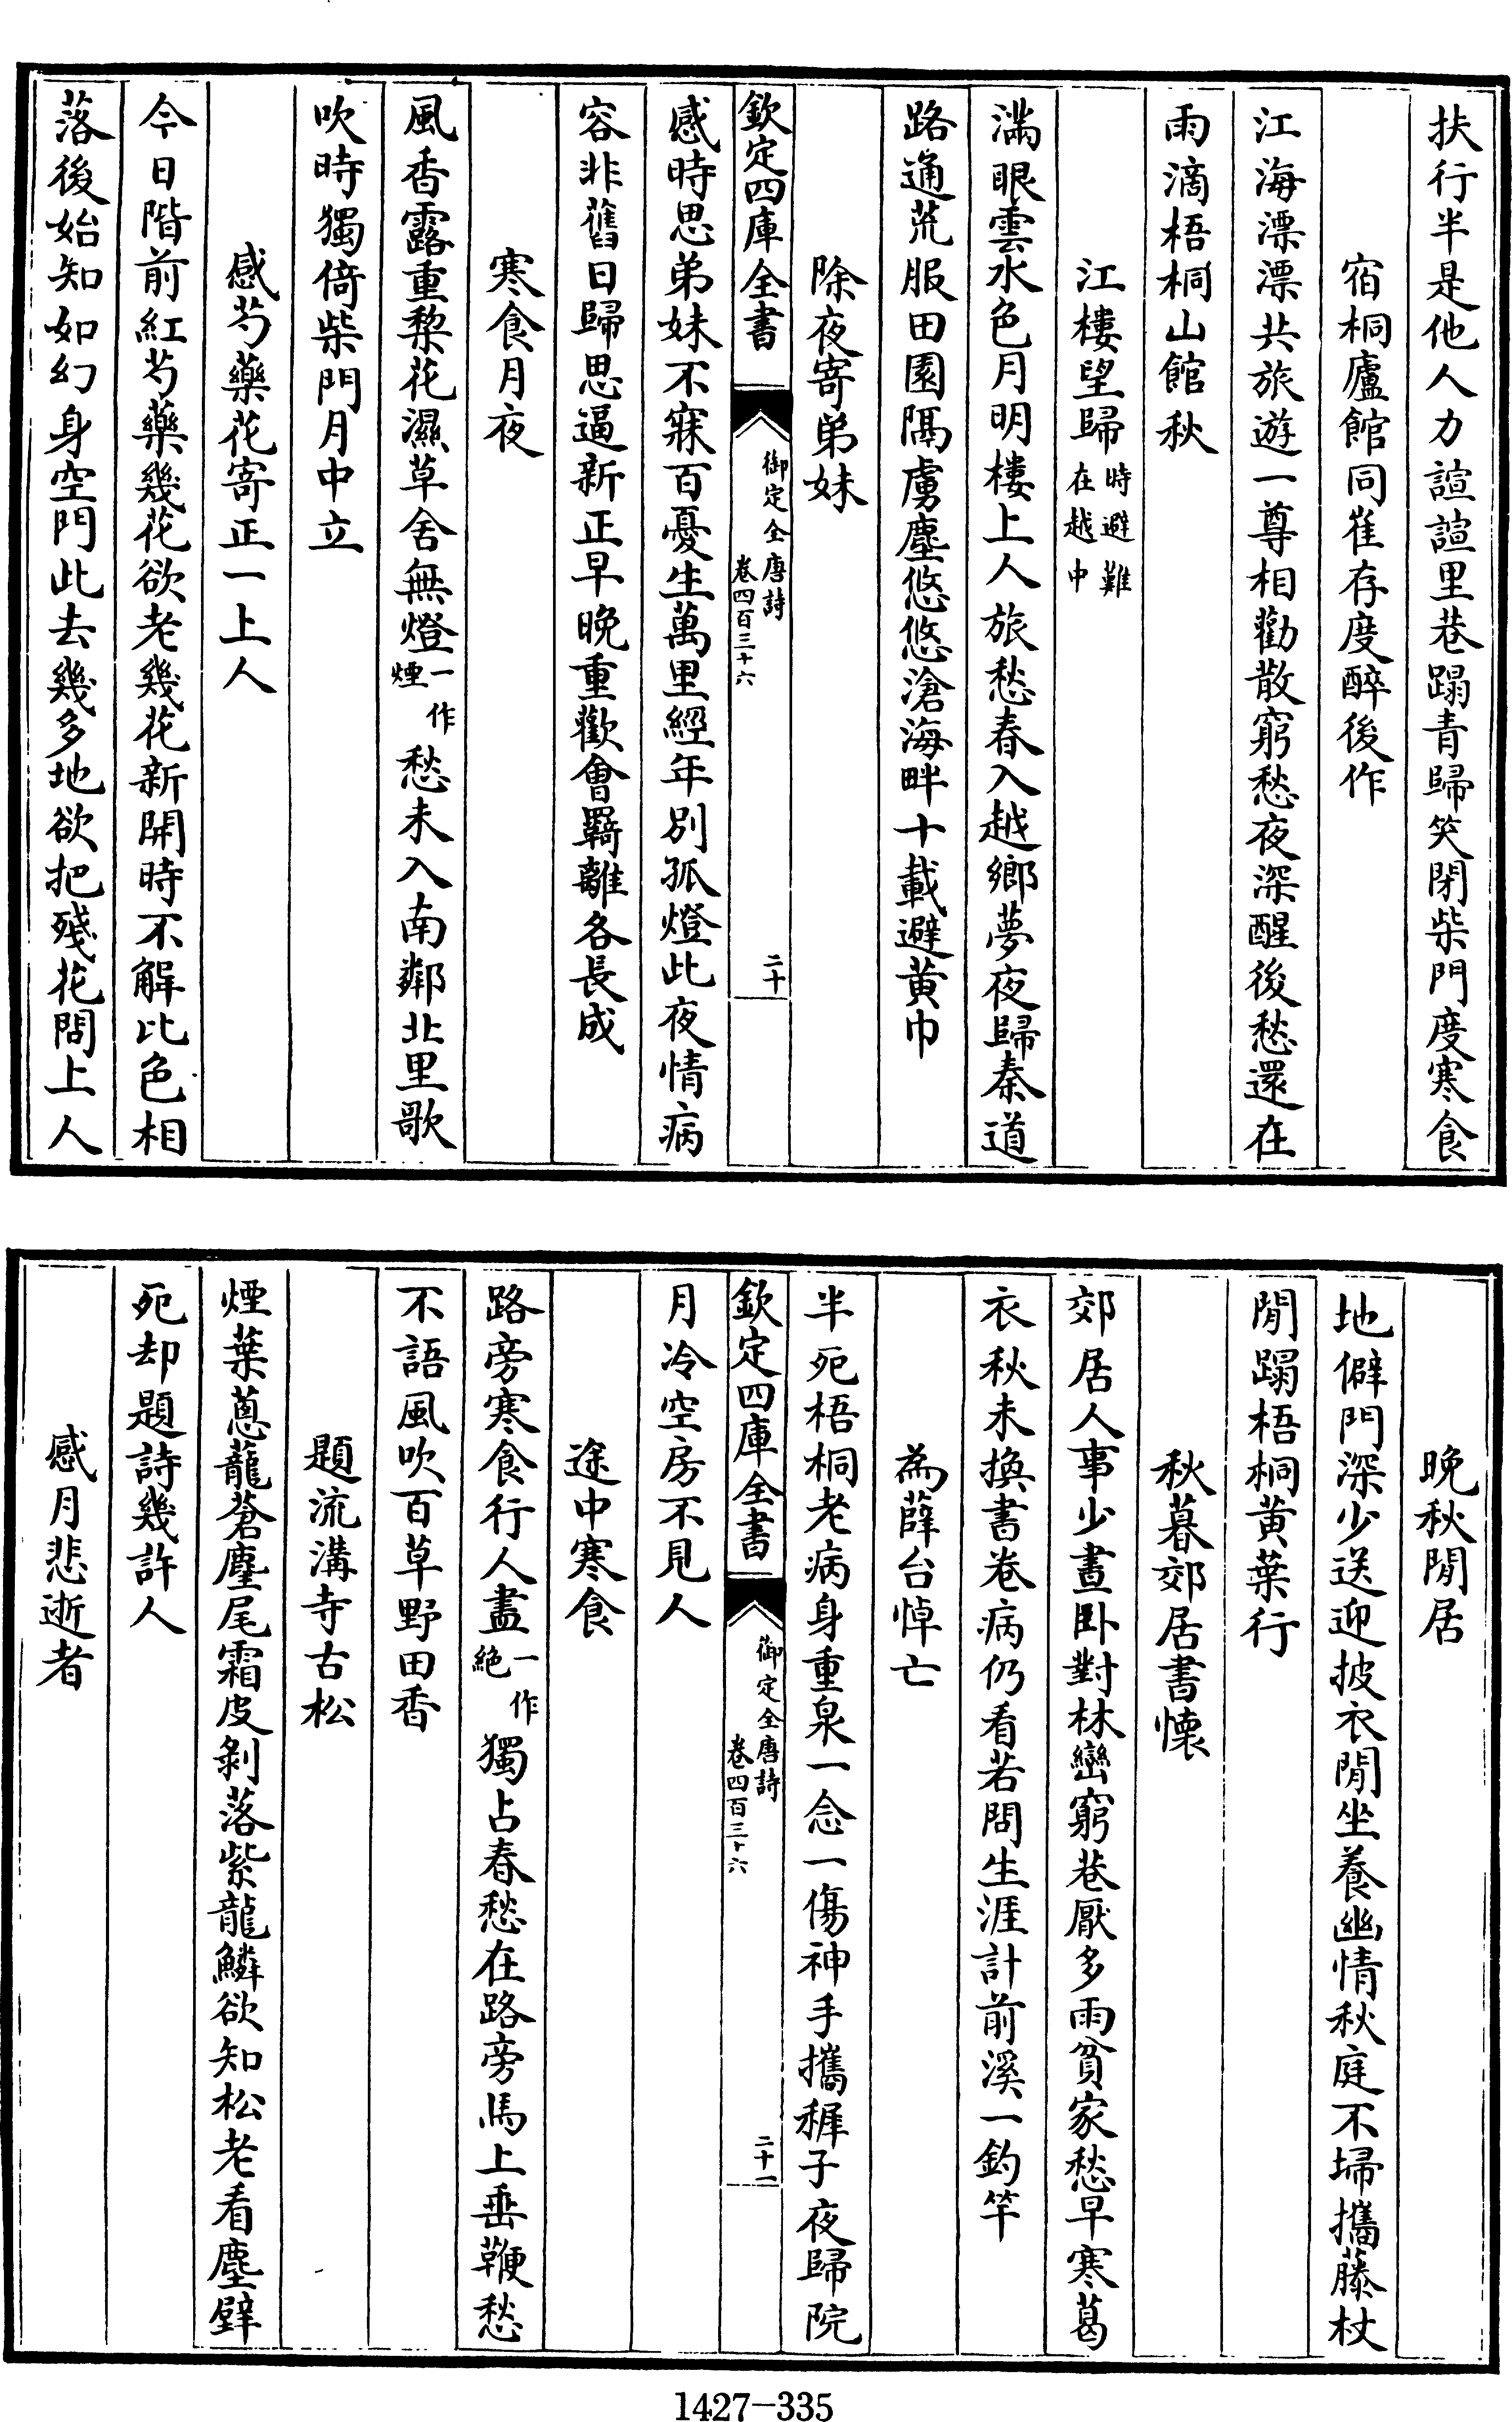 扶行半是他人力諠諠里巷蹋青歸笑閉柴門度寒食
宿桐廬館同崔存度醉後作
江海漂漂共旅遊一尊相勸散窮愁夜深醒後愁還在
雨滴梧桐山館秋
江樓望歸時避難在越中
滿眼雲水色月明樓上人旅愁春入越鄉夢夜歸秦道
路通荒服田園隔虜塵悠悠滄海畔十載避黃巾
除夜寄弟妹
欽定四庫全書 御定全唐詩卷四百三十六 二十
感時思弟妹不寐百憂生萬里經年別孤燈此夜情病
容非舊日歸思逼新正早晚重歡會羇離各長成
寒食月夜
風香露重棃花濕草舍無燈一作煙愁未入南鄰北里歌
吹時獨倚柴門月中立
感芍藥花寄正一上人
今日階前紅芍藥幾花欲老幾花新開時不解比色相
落後始知如幻身空門此去幾多地欲把殘花問上人
晚秋閒居
地僻門深少送迎披衣閒坐養幽情秋庭不埽攜藤杖
閒蹋梧桐黃葉行
秋暮郊居書懷
郊居人事少晝卧對林巒窮巷厭多雨貧家愁早寒葛
衣秋未換書卷病仍看若問生涯計前溪一釣竿
為薛台悼亡
半死梧桐老病身重泉一念一傷神手攜穉子夜歸院
欽定四庫全書 御定全唐詩卷四百三十六 二十一
月冷空房不見人
途中寒食
路旁寒食行人盡一作絕獨占春愁在路旁馬上垂鞭愁
不語風吹百草野田香
題流溝寺古松
煙葉蔥蘢蒼麈尾霜皮剝落紫龍鱗欲知松老看塵壁
死却題詩幾許人
感月悲逝者
1427-335